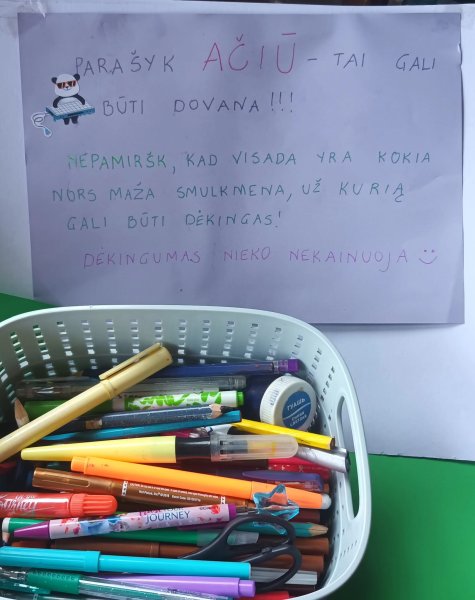 PARAŠYK AČIŪ - TAI GALI
BŪTI DOVANA!!!
NEPAMIRŠK, KAD VISADA YRA KOKIA
NORS MAŽA SMULKMENA, UŽ KURIĄ
GALI BŪTI DĖKINGAS!
DĖKINGUMAS NIEKO NEKAINUOJA
ГУАШЬ
JOURNEY